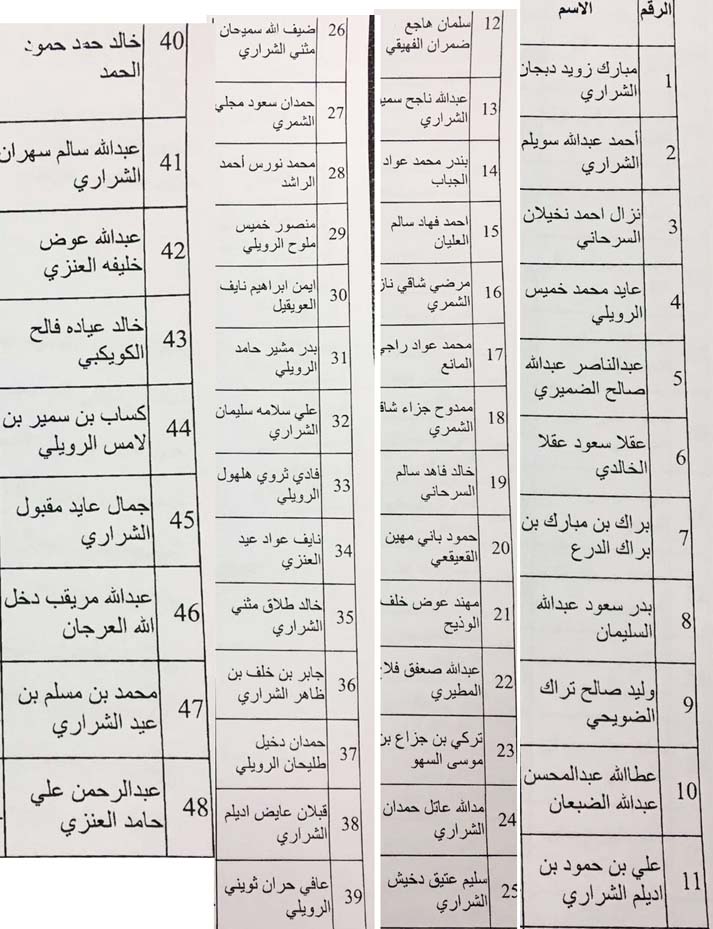 الرقم الاسم
1 مبارك زويد دبجان
الشراري
2 أحمد عبدالله سويلم
الشراري
3 نزال احمد نخيلان
السرحاني
4 عايد محمد خميس
الرويلي
5 عبدالناصر عبدالله
صالح الضميري
6 عقلا سعود عقلا
الخالدي
7 براك بن مبارك بن
براك الدرع
8 بدر سعود عبدالله
السليمان
9 وليد صالح تراك
الضويحي
10 عطاالله عبدالمحسن
عبدالله الضبعان
11 علي بن حمود بن
اديلم الشراري
12 سلمان هاجع
ضمران الفهيقي
13 عبدالله ناجح سمير
الشراري
14 بندر محمد عواد
الجباب
15 احمد فهاد سالم
العليان
16 مرضي شاقي
الشمري
17 محمد عواد راجي
المانع
18 ممدوح جزاء
الشمري
19 خالد فاهد سالم
السرحاني
20 حمود باني مهين
القعيقعي
21 مهند عوض خلف
الوذيح
22 عبدالله صعفق
المطيري
23 تركي بن جزاع بن
موسى السهو
24 مدالله عاتل حمدان
الشراري
25 سليم عتيق دخيش
الشراري
26 ضيف الله سميحان
مثني الشراري
27 حمدان سعود مجلي
الشمري
28 محمد نورس أحمد
الراشد
29 منصور خميس
ملوح الرويلي
30 ايمن ابراهيم نايف
العويقيل
31 بدر مشير حامد
الرويلي
32 علي سلامه سليمان
الشراري
33 فادي ثروي هلهول
الرويلي
34 نايف عواد عيد
العنزي
35 خالد طلاق مثني
الشراري
36 جابر بن خلف بن
ظاهر الشراري
37 حمدان دخيل
طليحان الرويلي
38 قبلان عايض اديلم
الشراري
39 عافي حران ثويني
الرويلي
40 خالد حمد حمود
الحمد
41 عبدالله سالم سهران
الشراري
42 عبدالله عوض
خليفه العنزي
43 خالد عياده فالح
الكويكبي
44 كساب بن سمير بن
لامس الرويلي
45 جمال عايد مقبول
الشراري
46 عبدالله مريقب دخل
الله العرجان
47 محمد بن مسلم بن
عيد الشراري
48 عبدالرحمن علي
حامد العنزي